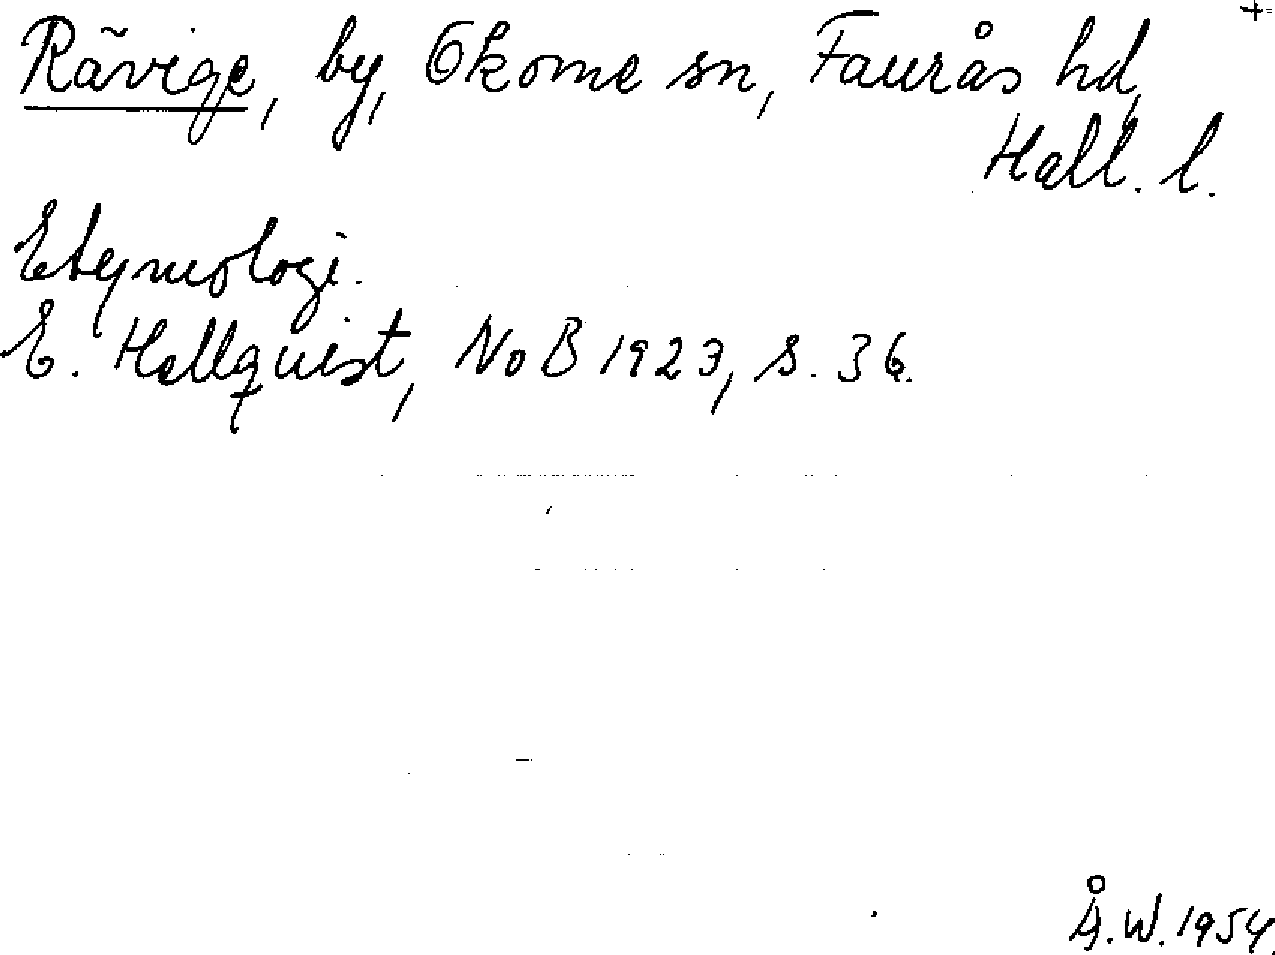 Rävige, by, Okome sn, Faurås hd,
Hall. l.
Etymologi.
E. Hellquist, NoB 1923, s. 36.
Å.W. 1954.